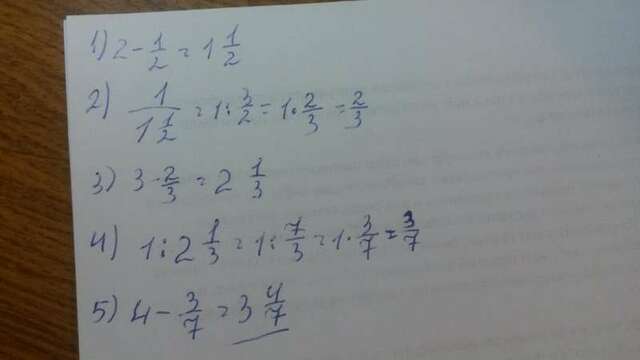 1) 2 - 1/2 = 1 1/2
2) 1/(1 1/2) = 1 : 3/2 = 1 · 2/3 = 2/3
3) 3 - 2/3 = 2 1/3
4) 1 : 2 1/3 = 1 : 7/3 = 1 · 3/7 = 3/7
5) 4 - 3/7 = 3 4/7